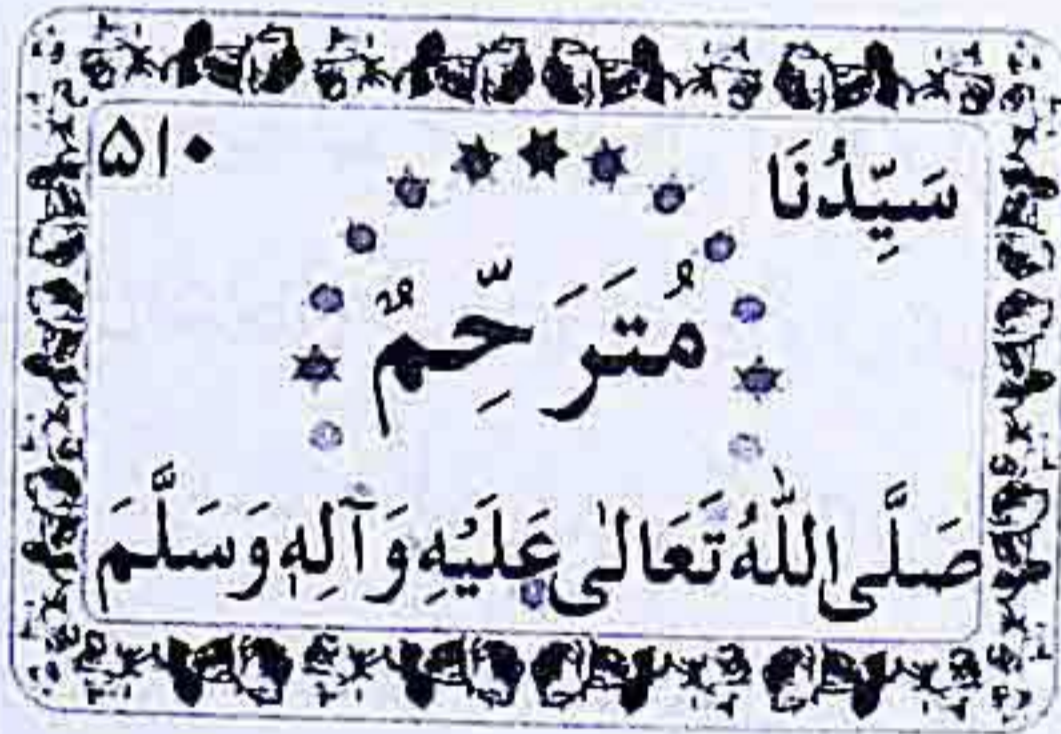 سَيِّدُنَا ۵۱۰
مُتَرَحِّمٌ
صَلَّى اللّٰهُ تَعَالٰى عَلَيْهِ وَآلِهٖ وَسَلَّمَ